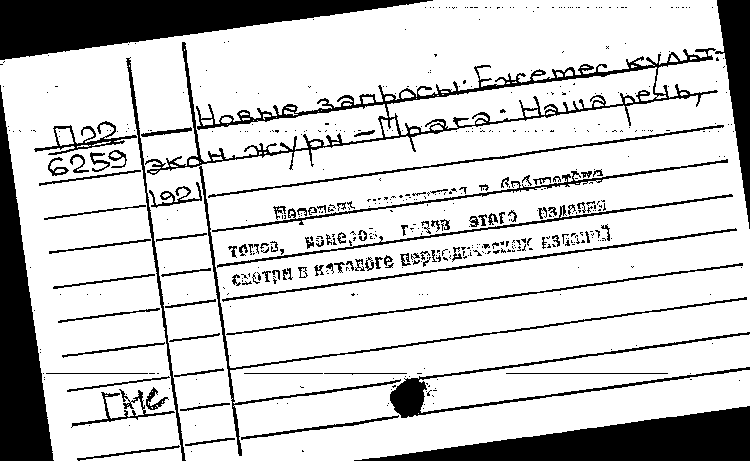 Новые запросы. Ежемес культ-
П22
экон. журн – Прага: Наша речь,
6259
1921
Перечень имеющихся в библиотеке
томов, номеров, годов этого издания
смотри в каталоге периодических изданий